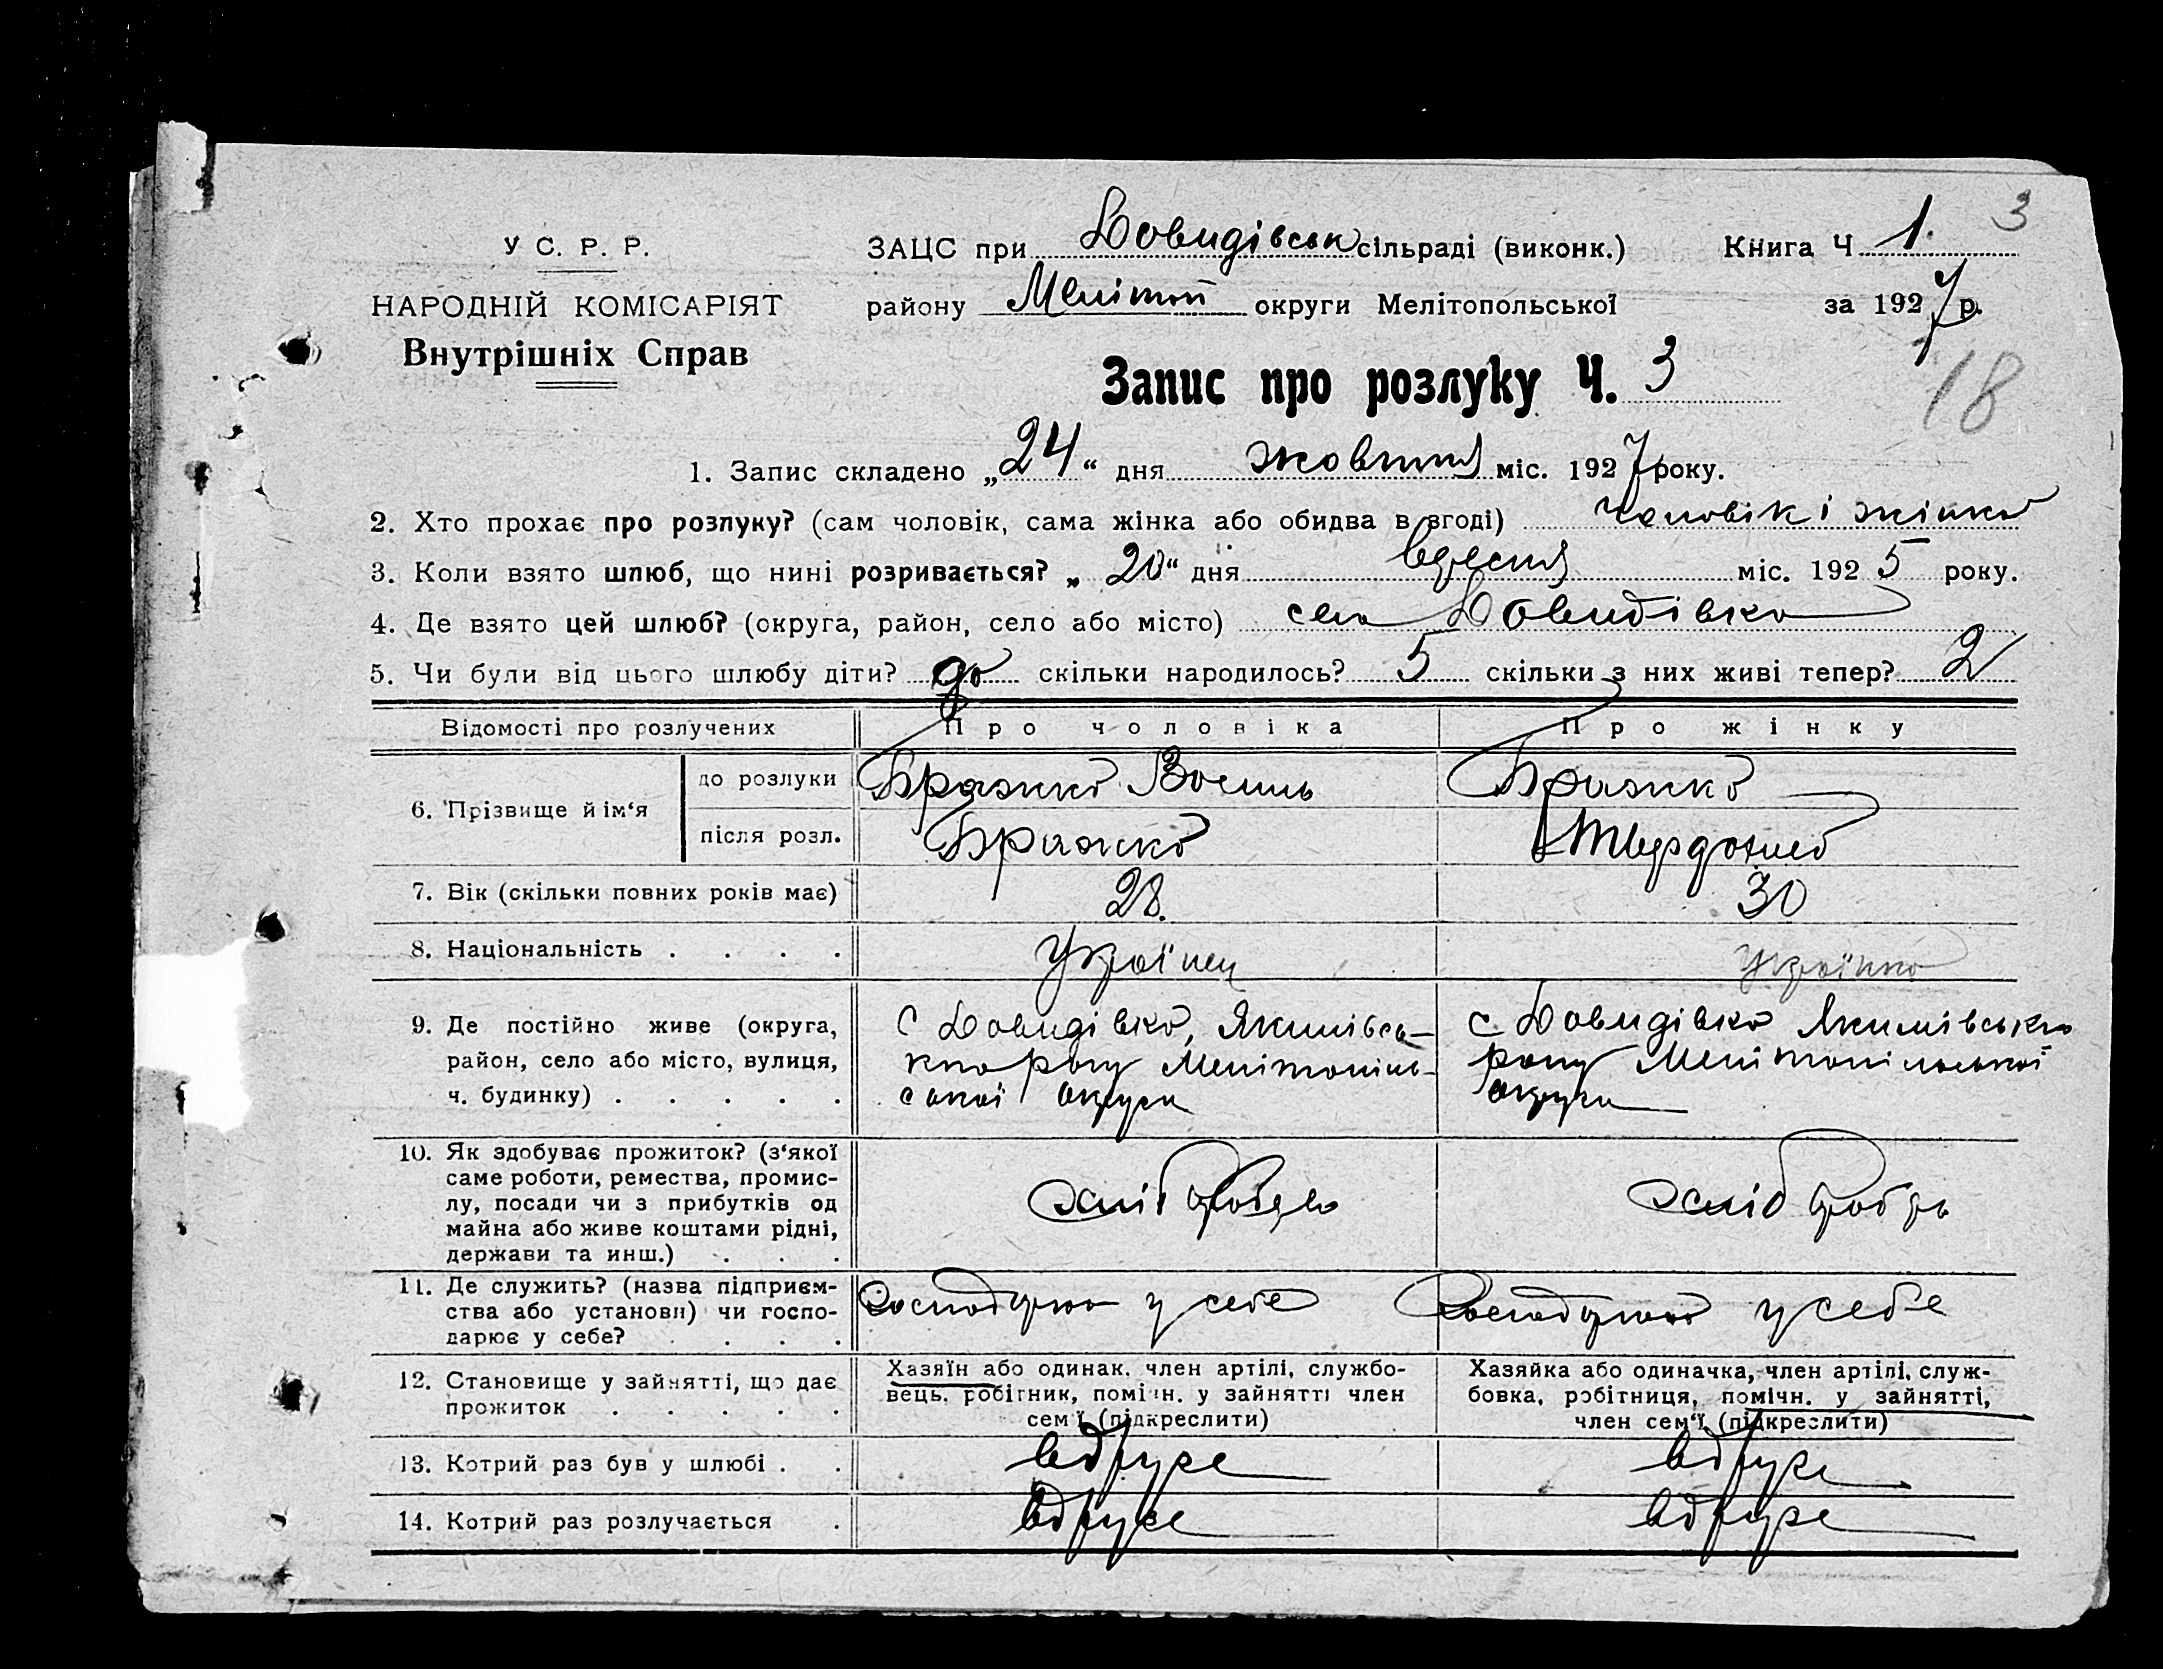 3
У С. Р. Р.
НАРОДНІЙ КОМІСАРІЯТ
Внутрішніх Справ
ЗАЦС при Довидівськ сільраді (виконк.) Книга Ч 1.
району Мелітоп округи Мелітопольської за 1927 р.
Запис про розлуку Ч. 3
18
1. Запис складено „24“ дня жовтня міс. 1927 року.
2. Хто прохає про розлуку? (сам чоловік, сама жінка або обидва в згоді) чоловік і жінка
3. Коли взято шлюб, що нині розривається? „20“ дня вересня міс. 1925 року.
4. Де взято цей шлюб? (округа, район, село або місто) село Довидівка
5. Чи були від цього шлюбу діти? да скільки народилось? 5 скільки з них живі тепер? 2
Відомості про розлучених Про чоловіка Про жінку
6. Прізвище й ім‘я
до розлуки Бражко Восиль Бражко
після розл. Бражко Твердохлеб
7. Вік (скільки повних років має) 28. 30
8. Національність . . . . Українец Українка
9. Де постійно живе (округа,
район, село або місто, вулиця,
ч. будинку) . . . . .
с Довидівка, Якимівсь-
кого р-ну Мелітопіль-
ської округи
с Довидівка Якимівського
р-ну Мелітопільської
округи
10. Як здобуває прожиток? (з‘якої
саме роботи, ремества, промис-
лу, посади чи з прибутків од
майна або живе коштами рідні,
держави та инш.) . . .
хлібороб хлібороб
11. Де служить? (назва підприєм-
ства або установи) чи госпо-
дарює у себе? . . . .
у себе у себе
12. Становище у зайнятті, що дає
прожиток . . . . .
Хазяїн або одинак, член артілі, службо-
вець, робітник, помічн. у зайнятті член
сем‘ї (підкреслити)
Хазяйка або одиначка, член артілі, служ-
бовка, робітниця, помічн. у зайнятті,
член сем‘ї (підкреслити)
13. Котрий раз був у шлюбі . . вдруге вдруге
14. Котрий раз розлучається . вдруге вдруге